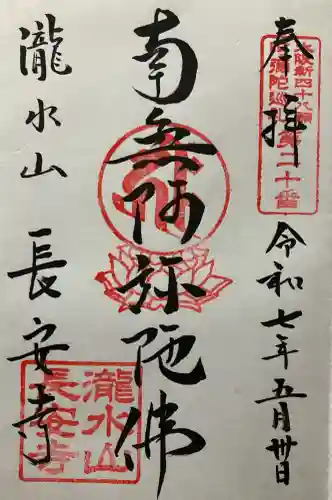 奉拝
大阪新四十八願
阿弥陀巡礼第二十番
令和七年五月卅日
南無阿弥陀佛
瀧水山 長安寺
瀧水山
長安寺